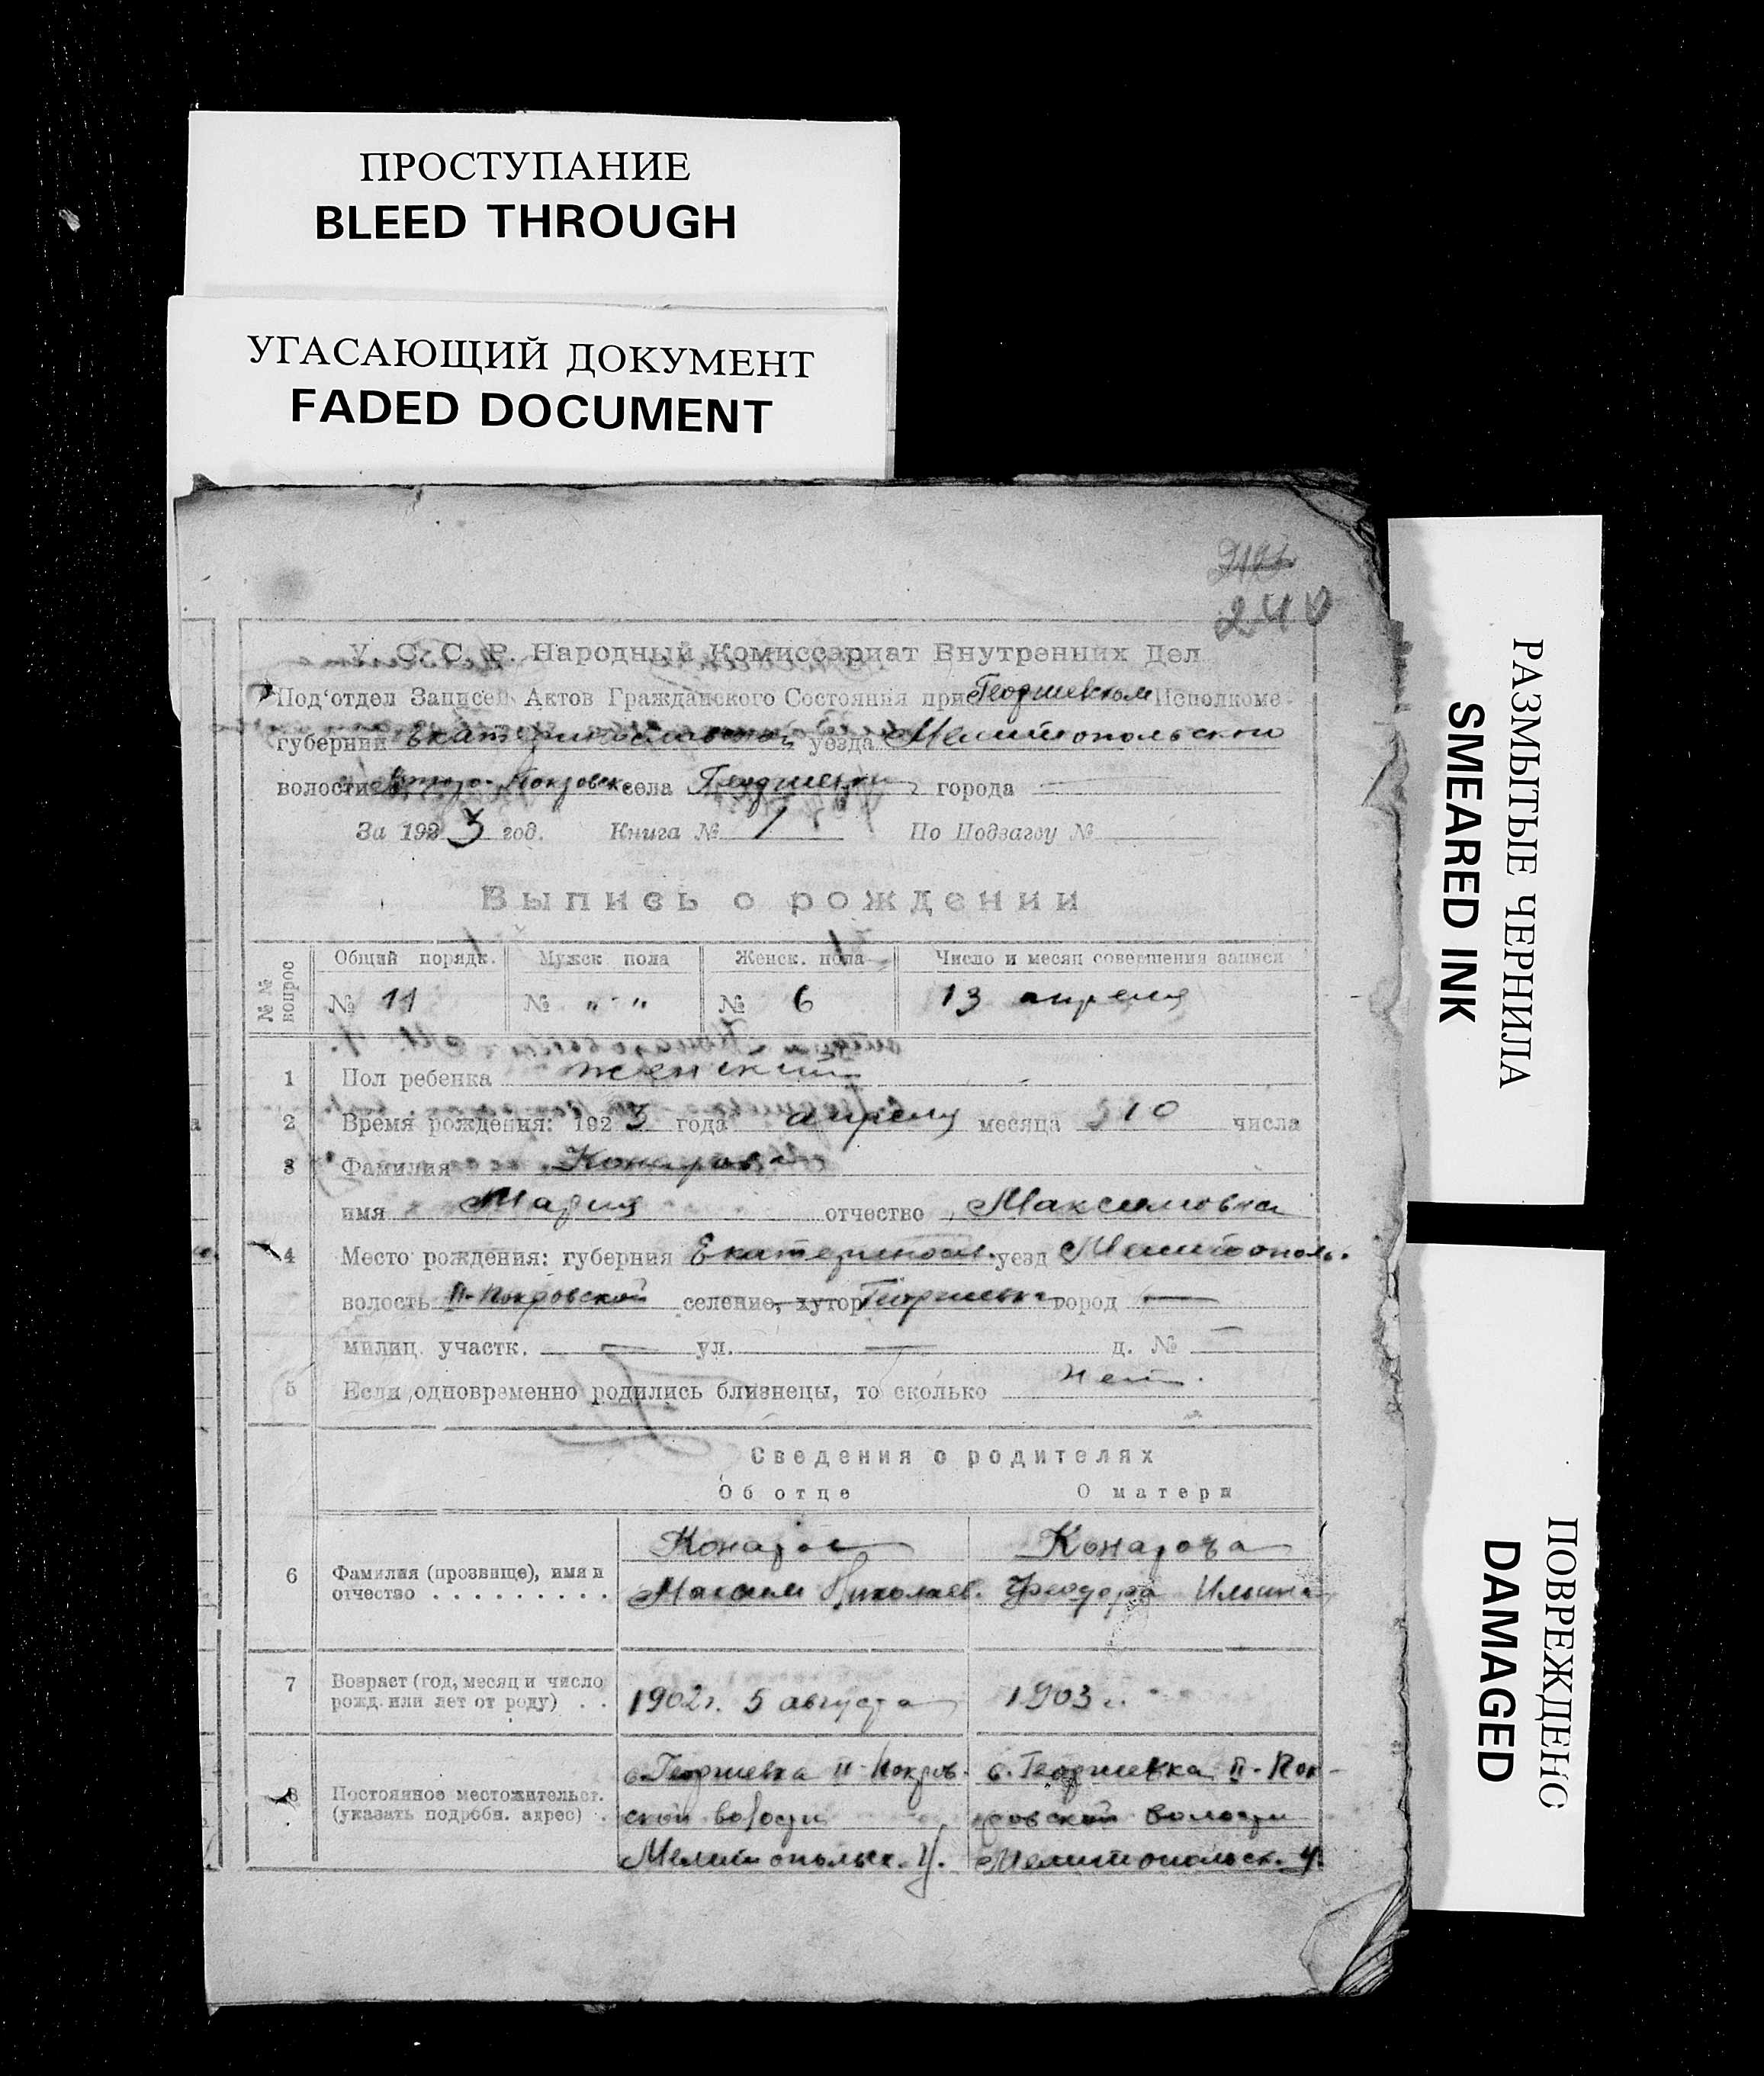 ПРОСТУПАНИЕ
BLEED THROUGH
УГАСАЮЩИЙ ДОКУМЕНТ
FADED DOCUMENT
РАЗМЫТЫЕ ЧЕРНИЛА
SMEARED INK
ПОВРЕЖДЕНО
DAMAGED
240
У. С. С. Р. Народный Комиссариат Внутренних Дел
Под'отдел Записей Актов Гражданского Состояния при Исполкоме
губернии Екатеринославской уезда Мелитопольского
волости Второ-Покровск. села Георгиевки города
За 1923 год. Книга № 1 По Подзагсу №
Выпись о рождении
№№ вопрос
Общий порядк. Мужск пола Женск. пола Число и месяц совершения записи
№ 11 № " - " № 6 13 апреля
1 Пол ребенка женский
2 Время рождения: 1923 года апреля месяца 10 числа
3 Фамилия Конарова
имя Мария отчество Максимовна
4 Место рождения: губерния Екатериносл. уезд Мелитополь.
волость II-Покровской селение, хутор Георгиевка город —
милиц. участк. — ул. — д. № —
5 Если одновременно родились близнецы, то сколько нет.
Сведения о родителях
Об отце О матери
6 Фамилия (прозвище), имя и
отчество . . . . . . . . .
Конаров Конарова
Максим Николаев. Феодора Ильина
7 Возраст (год, месяц и число
рожд. или лет от роду) . .
1902г. 5 августа 1903 г.
8 Постоянное местожительст.
(указать подробн. адрес) .
с. Георгиевка II-Покров. с. Георгиевка II-Пок-
ской волости ровской волости
Мелитопольск. у. Мелитопольск. у.